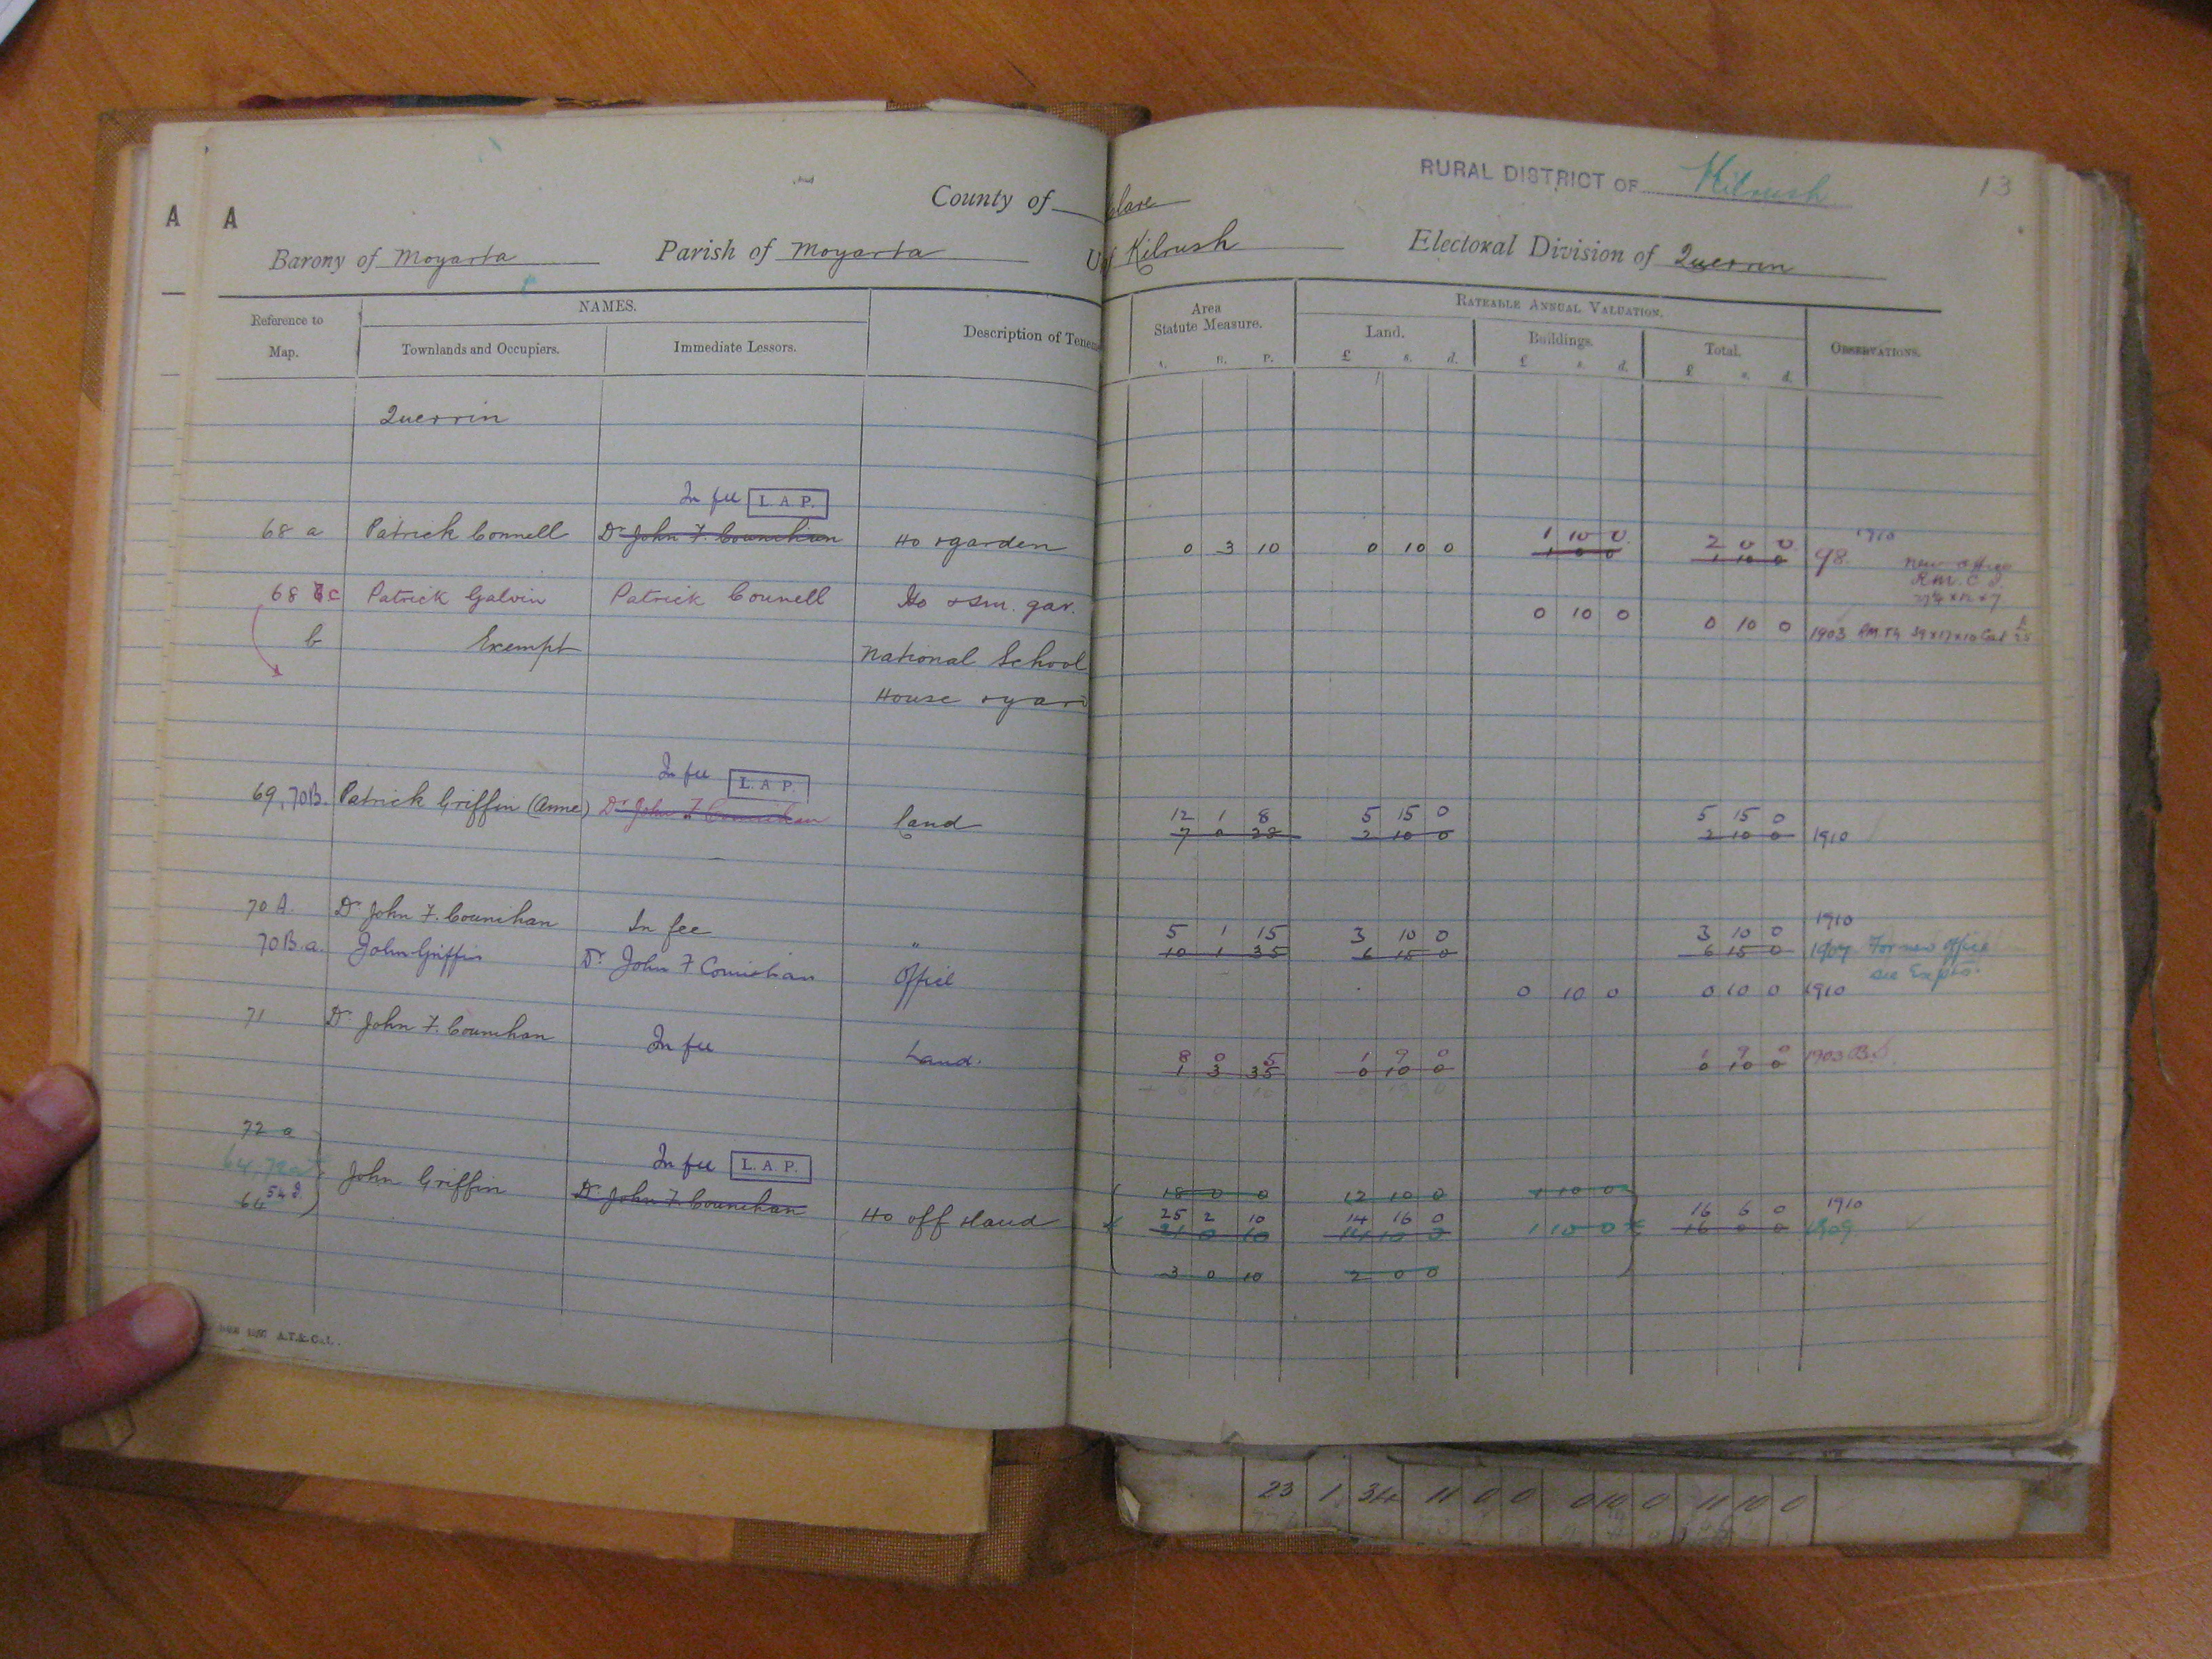 RURAL DISTRICT OF Kilrush 13
A A County of Clare
Barony of Moyarta Parish of Moyarta U of Kilrush Electoral Division of Querrin
Reference to Map. NAMES. Description of Tenem Area Statute Measure. RATEABLE ANNUAL VALUATION. OBSERVATIONS.
Townlands and Occupiers. Immediate Lessors. Land. Buildings. Total.
R. P. £ s. d. £ s. d. £ s. d.
Querrin
In fee L. A. P. 1 10 0 2 0 0 1910
68 a Patrick Connell Dr John F. Counihan Ho & garden 0 3 10 0 10 0 1 0 0 1 10 0 98. New office
68 c Patrick Galvin Patrick Connell Ho & sm. gar. 0 10 0 0 10 0 1903
b Exempt National School
House & yard
In fee L. A. P.
69, 70B. Patrick Griffin (Anne) Dr John F. Counihan Land 12 1 8 5 15 0 5 15 0
7 0 28 2 10 0 2 10 0 1910
70 A. Dr John F. Counihan In fee " 5 1 15 3 10 0 3 10 0 1910
10 1 35 6 15 0 6 15 0 1907 For new office
see Expts.
70B.a. John Griffin Dr John F Counihan Office 0 10 0 0 10 0 1910
71 Dr John F. Counihan In fee Land. 8 0 5 1 9 0 1 9 0 1903
1 3 35 0 10 0 0 10 0
72 a
64, 72a In fee L. A. P.
64 John Griffin Dr John F. Counihan Ho off & land 18 0 0 12 10 0 1 10 0
25 2 10 14 16 0 16 6 0 1910
21 0 10 14 10 0 1 10 0 16 0 0 1909
3 0 10 2 0 0
A.T.& Co.L.
23 1 34 11 0 0 0 10 0 11 10 0